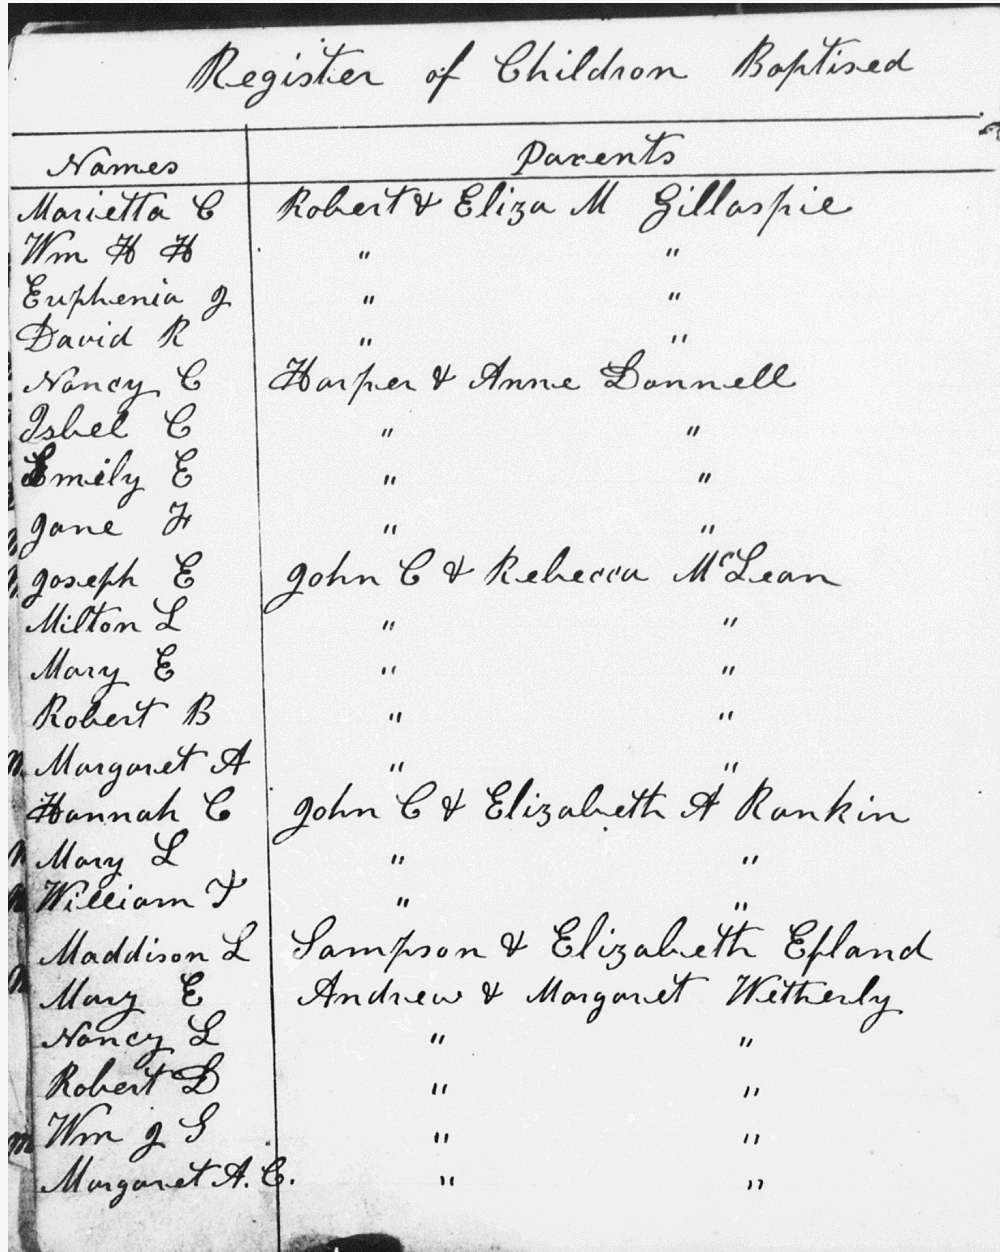 Register of Children Baptised
Names Parents
Marietta C Robert & Eliza M Gillaspie
Wm H H " "
Euphenia J " "
David R " "
Nancy C Harper & Anne Donnell
Isbel C " "
Emily E " "
Jane F " "
Joseph E John C & Rebecca McLean
Milton L " "
Mary E " "
Robert B " "
Margaret A " "
Hannah C John C & Elizabeth A Rankin
Mary L " "
William T " "
Maddison L Sampson & Elizabeth Efland
Mary E Andrew & Margaret Wetherly
Nancy L " "
Robert D " "
Wm J G " "
Margaret A. C. " "